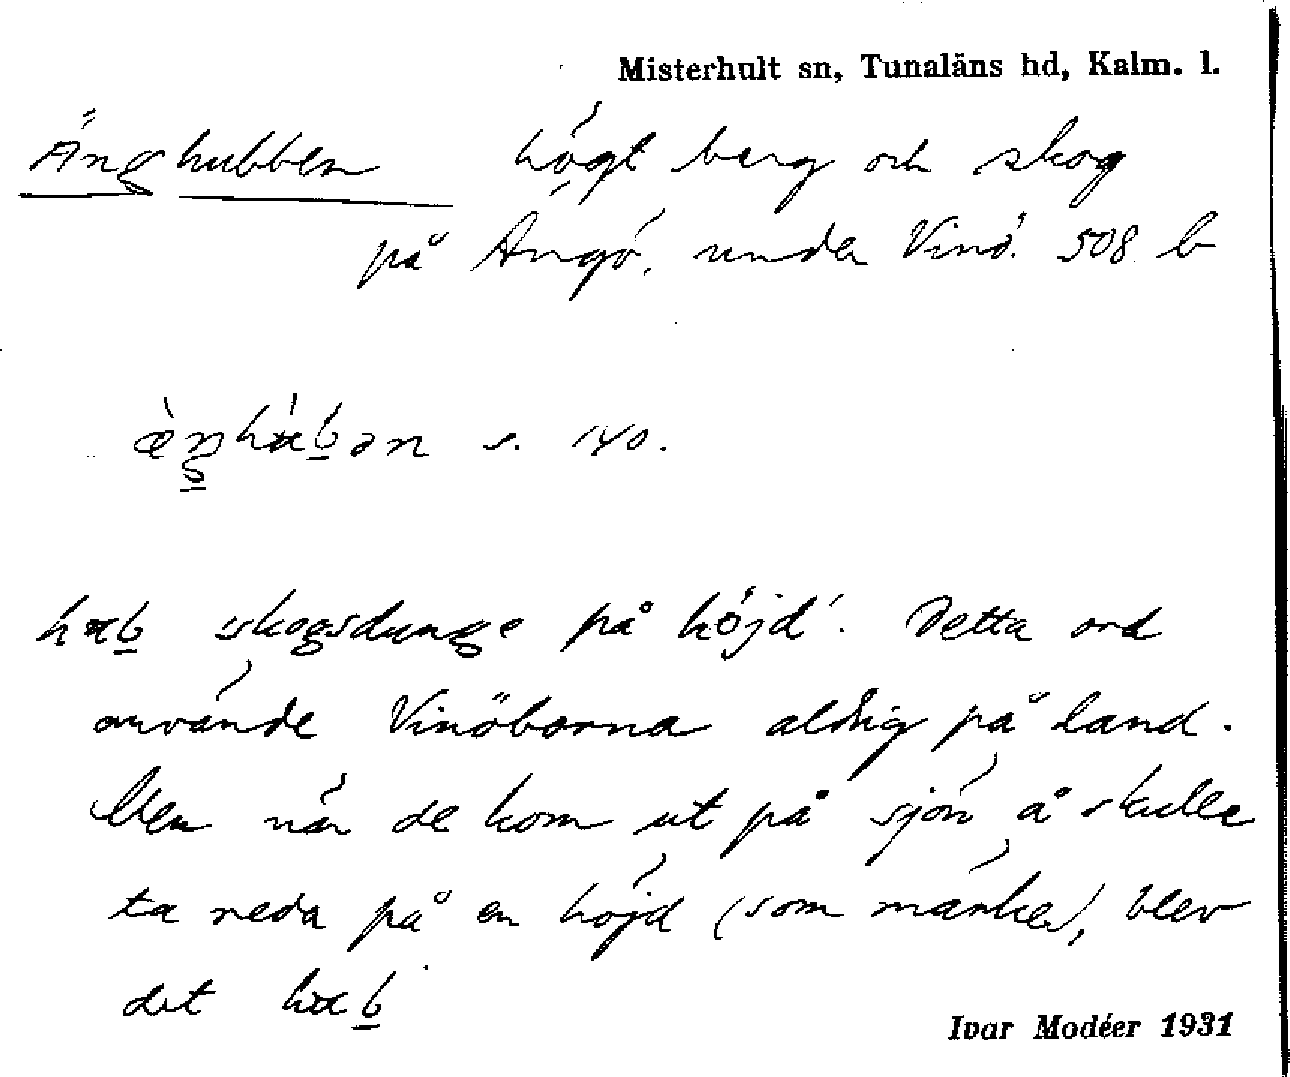 Misterhult sn, Tunaläns hd, Kalm. l.
Änghubben högt berg och skog
på Ängö, under Vinö. 508 b
s. 140.
skogsdunge på höjd'. Detta ord
använde Vinöborna aldrig på land.
Men när de kom ut på sjön å skulle
ta reda på en höjd (som märke), blev
det
Ivar Modéer 1931